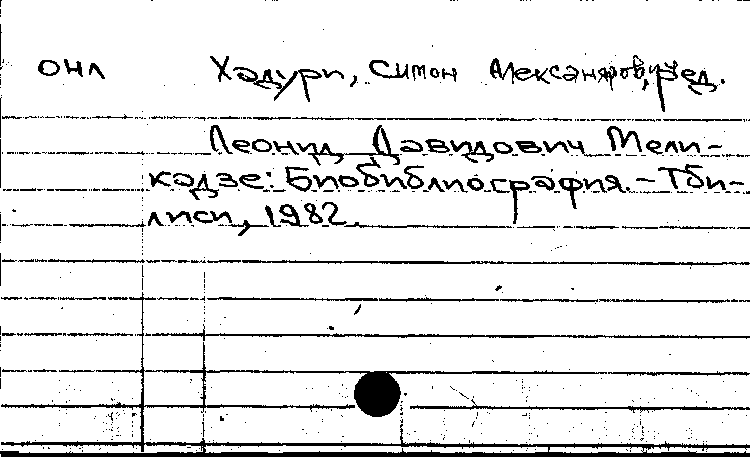 ОНЛ Хэдури, Симон Александрович, ред.
Леонид Давидович Мели-
кадзе: Биобиблиография. - Тби-
лиси, 1982.